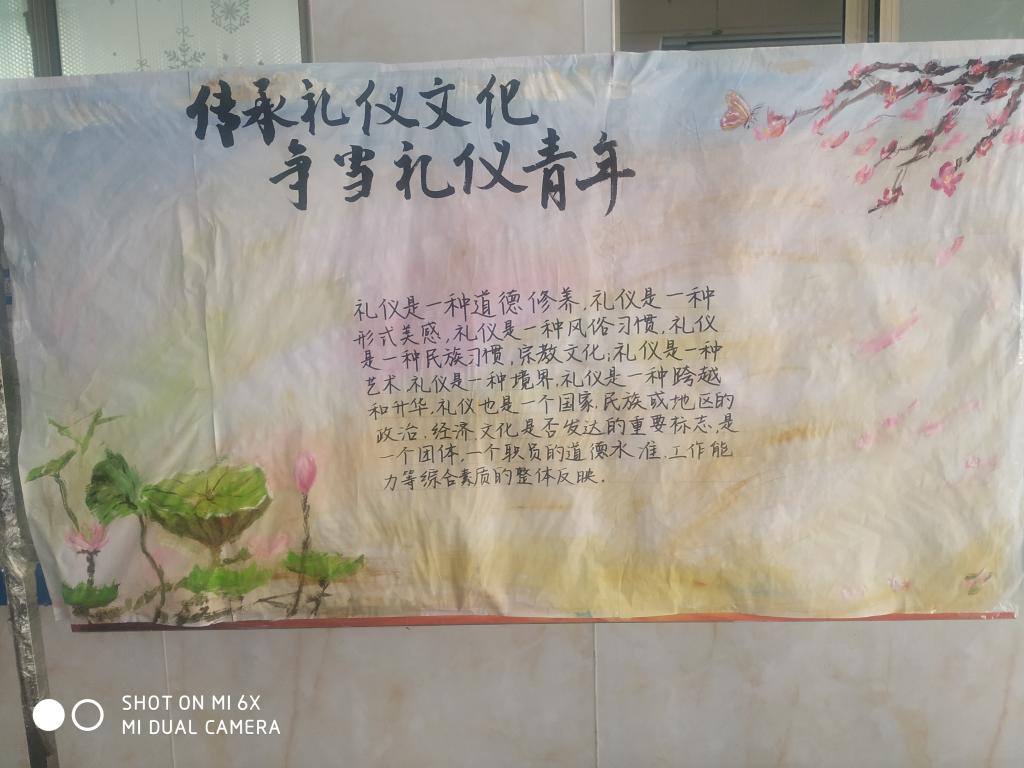 传承礼仪文化
争当礼仪青年
礼仪是一种道德修养,礼仪是一种
形式美感,礼仪是一种风俗习惯,礼仪
是一种民族习惯,宗教文化;礼仪是一种
艺术,礼仪是一种境界,礼仪是一种跨越
和升华,礼仪也是一个国家,民族或地区的
政治,经济,文化是否发达的重要标志,是
一个团体,一个职员的道德水准,工作能
力等综合素质的整体反映.
SHOT ON MI 6X
MI DUAL CAMERA